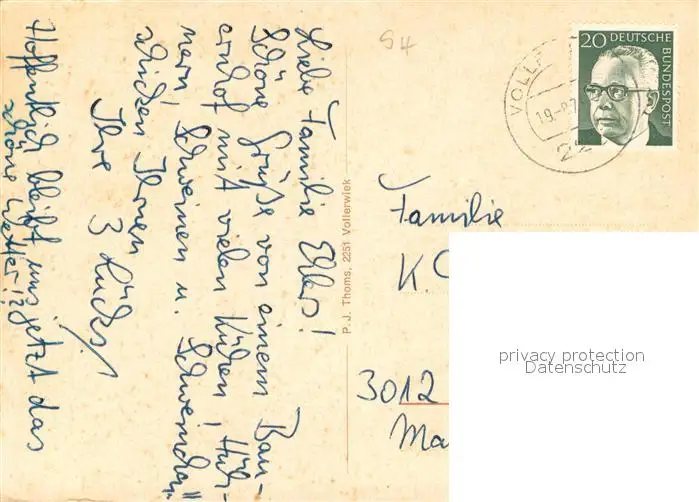 Liebe Familie Ehlers!
Schöne Grüße von einem Bau-
ernhof mit vielen Kühen, Hüh-
nern, Schweinen u. Schweinchen
schicken Ihnen
Ihre 3 Lücks!
Hoffentlich bleibt uns jetzt das
schöne Wetter!?
P. J. Thoms, 2251 Vollerwiek
S4
20 DEUTSCHE
BUNDESPOST
VOLL
19.-8.7
22
Familie
K.
3012
Ma
privacy protection
Datenschutz